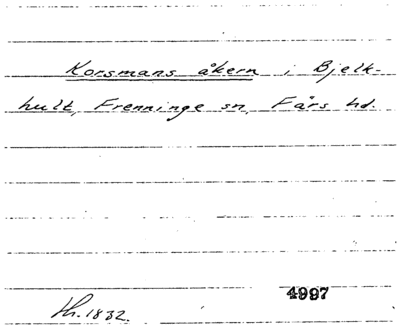 Korsmans åkern i Bjelk-
hult, Frenninge sn, Fårs hd.
4997
Th. 1832.